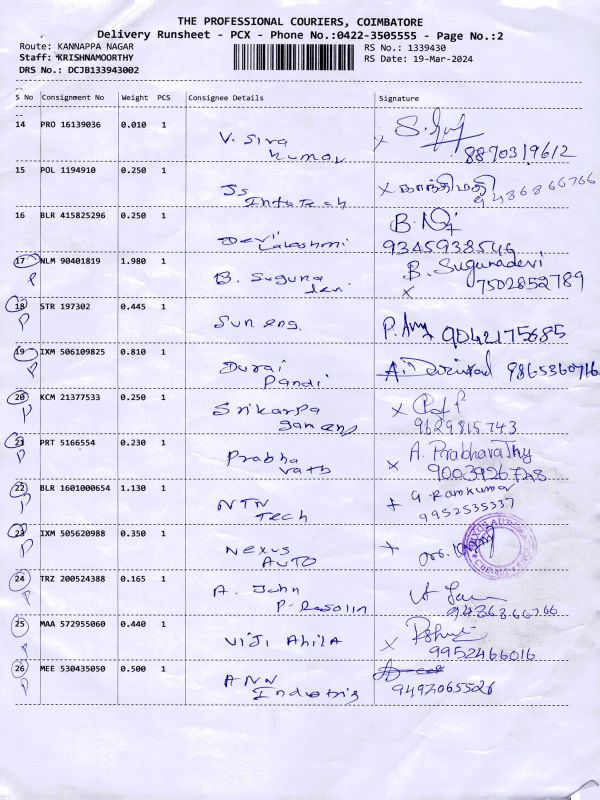 THE PROFESSIONAL COURIERS, COIMBATORE
Delivery Runsheet - PCX - Phone No.:0422-3505555 - Page No.:2
Route: KANNAPPA NAGAR RS No.: 1339430
Staff: KRISHNAMOORTHY RS Date: 19-Mar-2024
DRS No.: DCJB133943002
S No Consignment No Weight PCS Consignee Details Signature
14 PRO 16139036 0.010 1
V. Siva
Kumar
8870319612
15 POL 1194910 0.250 1
Js
Infotech
x காந்திமதி
9486866766
16 BLR 415825296 0.250 1
Devi
Lakashmi
9345938546
17 NLM 90401819 1.980 1
P
B. Suguna
devi
B. Sugunadevi
7502852789
x
18 STR 197302 0.445 1
P
Sun eng.
9042175685
19 IXM 506109825 0.810 1
P
Durai
Pandi
9865360716
20 KCM 21377533 0.250 1
P
Srikarpa
x
9629815743
21 PRT 5166554 0.230 1
P
Prabha
vath
x A. Prabhavathy
22 BLR 1601000654 1.130 1
P
NTN
Tech
G. Ramkumar
9952535337
23 IXM 505620988 0.350 1
P
Nexus
AUTO
24 TRZ 200524388 0.165 1
P
A. John
P. Rosolin
9486866766
25 MAA 572955060 0.440 1
P
Viji Ahila
x
9952466016
26 MEE 530435050 0.500 1
P
ANN
Industris
9492065526